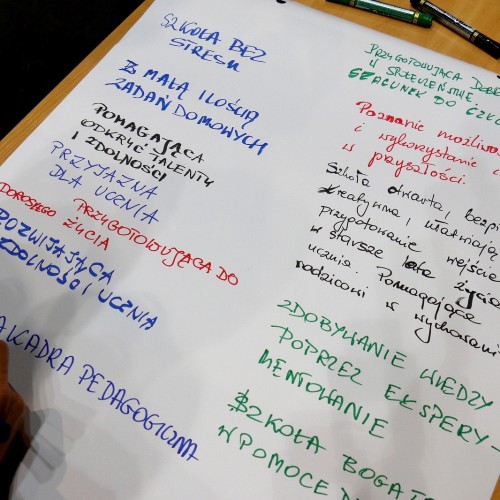 SZKOŁA BEZ
STRESU
Z MAŁĄ ILOŚCIĄ
ZADAŃ DOMOWYCH
POMAGAJĄCA
ODKRYĆ TALENTY
I ZDOLNOŚCI
PRZYJAZNA
DLA UCZNIA
PRZYGOTOWUJĄCA DO
DOROSŁEGO ŻYCIA
ROZWIJAJĄCA
ZDOLNOŚCI UCZNIA
KADRA PEDAGOGICZNA
PRZYGOTOWUJĄCA
SZACUNEK DO
Poznanie
i wykorzystanie
w przyszłości.
Szkoła otwarta,
kreatywna,
przygotowanie wejście
w starsze lata życia
ucznia. Pomagające
rodzicowi w
ZDOBYWANIE WIEDZY
POPRZEZ EKSPERY-
MENTOWANIE
SZKOŁA
W POMOCE